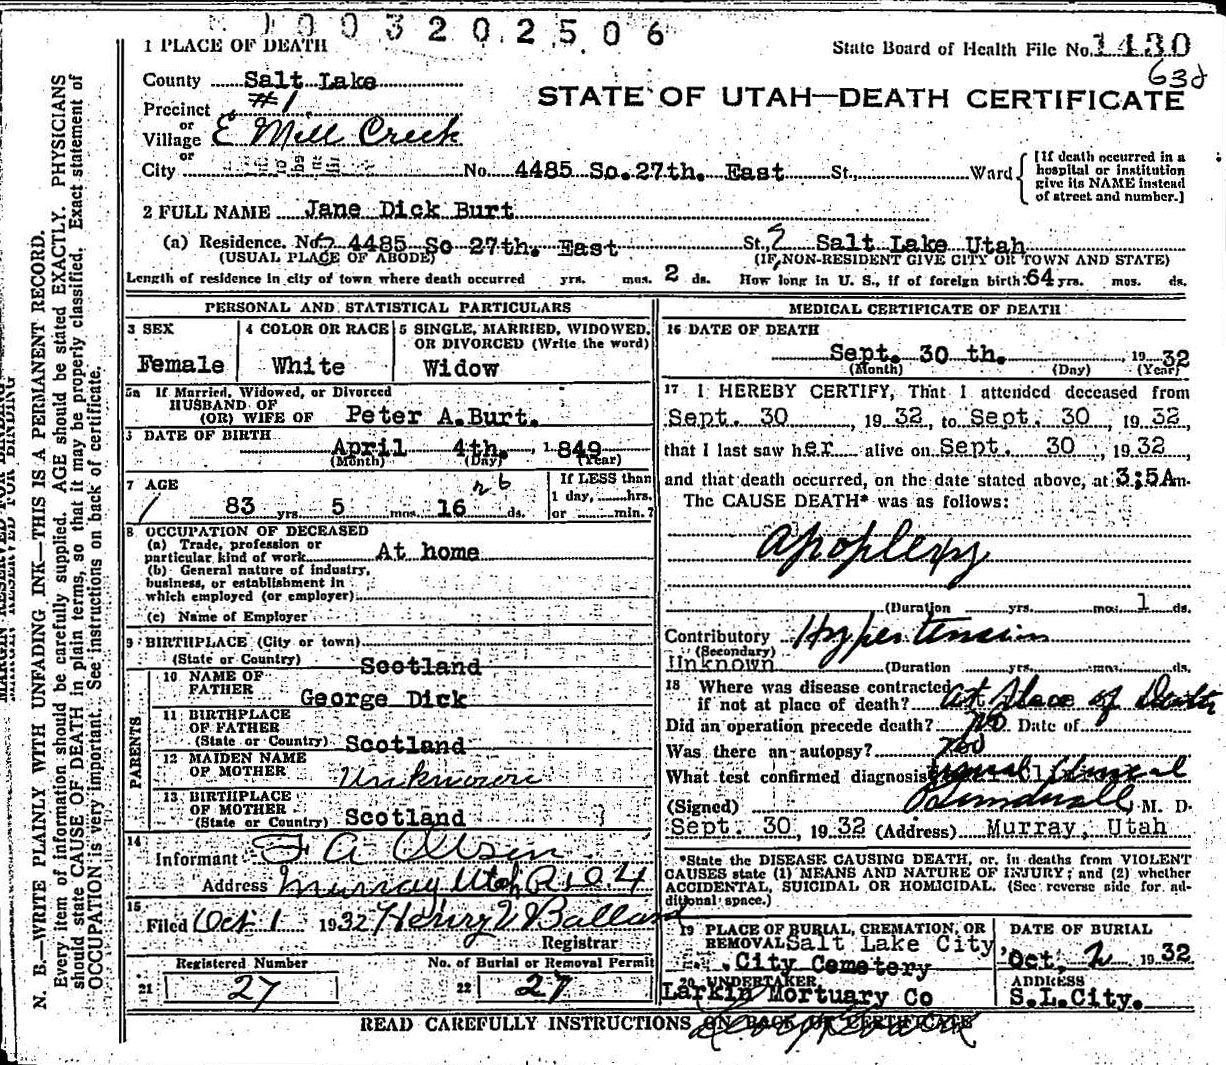 1003202506
1 PLACE OF DEATH
State Board of Health File No. 1430
63d
County Salt Lake
STATE OF UTAH—DEATH CERTIFICATE
Precinct #1
or
Village E Mill Creek
or
City No. 4485 So. 27th. East St., Ward
[If death occurred in a hospital or institution give its NAME instead of street and number.]
2 FULL NAME Jane Dick Burt
(a) Residence. No. 4485 So 27th. East St., Salt Lake Utah
(USUAL PLACE OF ABODE) (IF NON-RESIDENT GIVE CITY OR TOWN AND STATE)
Length of residence in city of town where death occurred yrs. mos. 2 ds. How long in U. S., if of foreign birth: 64 yrs. mos. ds.
PERSONAL AND STATISTICAL PARTICULARS
3 SEX
Female
4 COLOR OR RACE
White
5 SINGLE, MARRIED, WIDOWED, OR DIVORCED (Write the word)
Widow
5a If Married, Widowed, or Divorced
HUSBAND OF
(OR) WIFE OF Peter A. Burt.
DATE OF BIRTH
April 4th. 1849
(Month) (Day) (Year)
7 AGE
83 yrs. 5 mos. 16 ds.
26
If LESS than
1 day, hrs.
or min.?
8 OCCUPATION OF DECEASED
(a) Trade, profession or
particular kind of work At home
(b) General nature of industry,
business, or establishment in
which employed (or employer)
(c) Name of Employer
9 BIRTHPLACE (City or town)
(State or Country) Scotland
PARENTS
10 NAME OF
FATHER George Dick
11 BIRTHPLACE
OF FATHER
(State or Country) Scotland
12 MAIDEN NAME
OF MOTHER Unknown
13 BIRTHPLACE
OF MOTHER
(State or Country) Scotland
14
Informant F A Olsen
Address Murray Utah R.D. 4
15
Filed Oct 1 1932 Henry V Ballard
Registrar
Registered Number No. of Burial or Removal Permit
21 27 22 27
MEDICAL CERTIFICATE OF DEATH
16 DATE OF DEATH
Sept. 30 th. 1932
(Month) (Day) (Year)
17 I HEREBY CERTIFY, That I attended deceased from
Sept. 30, 1932, to Sept. 30, 1932,
that I last saw her alive on Sept. 30, 1932,
and that death occurred, on the date stated above, at 3;5A m.
The CAUSE DEATH* was as follows:
Apoplexy
(Duration yrs. mos. 1 ds.
Contributory Hypertension
(Secondary)
Unknown (Duration yrs. mos. ds.
18 Where was disease contracted
if not at place of death? at Place of Death
Did an operation precede death? No Date of
Was there an autopsy? no
What test confirmed diagnosis Clinical
(Signed) M. D.
Sept. 30, 1932 (Address) Murray, Utah
*State the DISEASE CAUSING DEATH, or, in deaths from VIOLENT
CAUSES state (1) MEANS AND NATURE OF INJURY; and (2) whether
ACCIDENTAL, SUICIDAL OR HOMICIDAL. (See reverse side for ad-
ditional space.)
19 PLACE OF BURIAL, CREMATION, OR
REMOVAL Salt Lake City
City Cemetery
DATE OF BURIAL
Oct, 2 1932
20 UNDERTAKER
Larkin Mortuary Co
ADDRESS
S.L.City.
READ CAREFULLY INSTRUCTIONS ON BACK OF CERTIFICATE
MARGIN RESERVED FOR BINDING
N. B.—WRITE PLAINLY WITH UNFADING INK—THIS IS A PERMANENT RECORD.
Every item of information should be carefully supplied. AGE should be stated EXACTLY. PHYSICIANS
should state CAUSE OF DEATH in plain terms, so that it may be properly classified. Exact statement of
OCCUPATION is very important. See instructions on back of certificate.